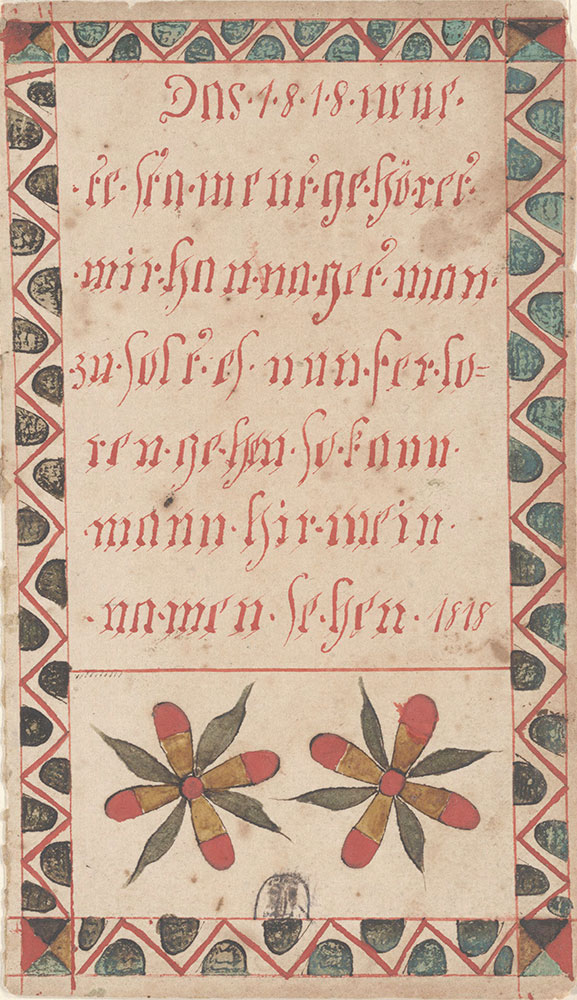 Das·1·8·1·8·neue·
te·sta·ment·ge·hö·ret·
·mir·han·na·ger·man·
zu·solt·es·nun·fer·lo=
ren·ge·hen·so·kann·
·mann·hir·mein·
·na·men·se·hen·1818